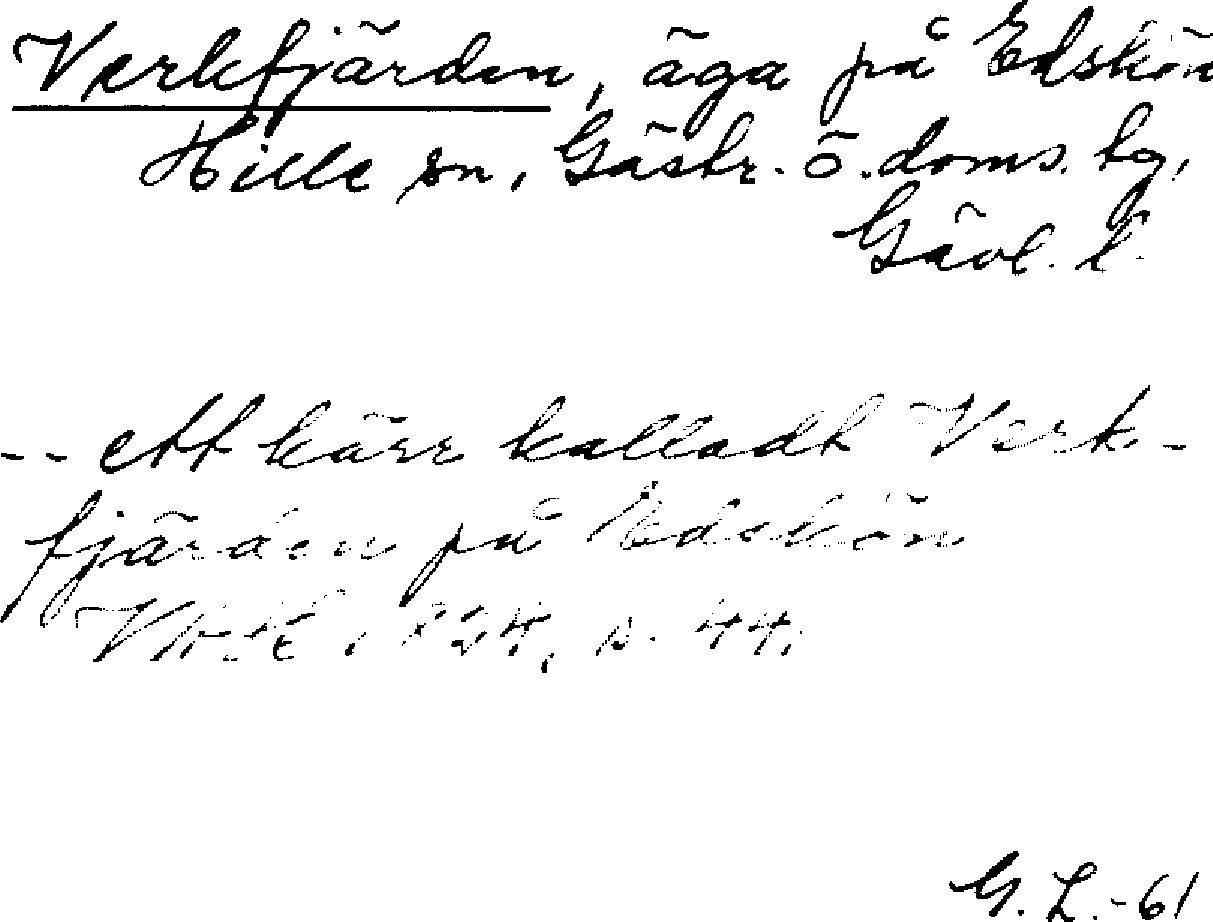 Verkfjärden, äga på Edskön
Hille sn, Gästr. ö. doms. hg,
Gävl. l.
-- ett kärr kalladt Verk-
fjärden på Edskön
1824, s. 44.
G. L. -61